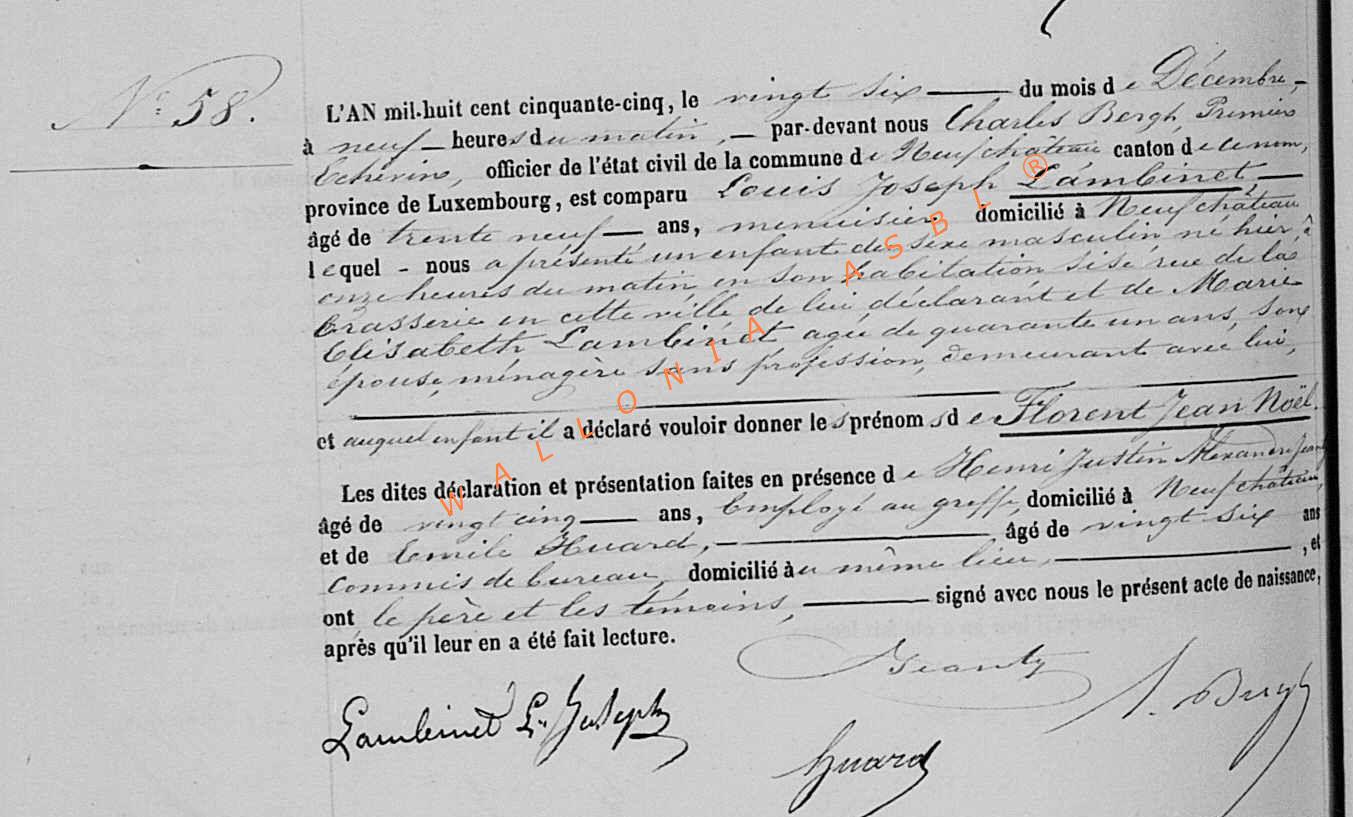 N° 58.
L'AN mil-huit cent cinquante-cinq, le vingt six du mois de Décembre,
à neuf heures du matin, par-devant nous Charles Bergh, Premier
Echevin, officier de l'état civil de la commune de Neufchâteau canton de ce nom,
province de Luxembourg, est comparu Louis Joseph Lambinet,
âgé de trente neuf ans, menuisier domicilié à Neufchâteau
lequel - nous a présenté un enfant du sexe masculin né hier, à
onze heures du matin en son habitation sise rue de la
Brasserie en cette ville de lui déclarant et de Marie
Elisabeth Lambinet agée de quarante un ans, son
épouse, ménagère sans profession, demeurant avec lui,
et auquel enfant il a déclaré vouloir donner les prénoms de Florent Jean Noël.
Les dites déclaration et présentation faites en présence de Henri Justin Alexandre
âgé de vingt cinq ans, Employé au greffe, domicilié à Neufchâteau,
et de Emile Huard, âgé de vingt six ans
Commis de bureau, domicilié au même lieu, , et
ont le père et les témoins, signé avec nous le présent acte de naissance,
après qu'il leur en a été fait lecture.
Lambinet L. Joseph
Huard
Bergh
WALLONIA ASBL ®